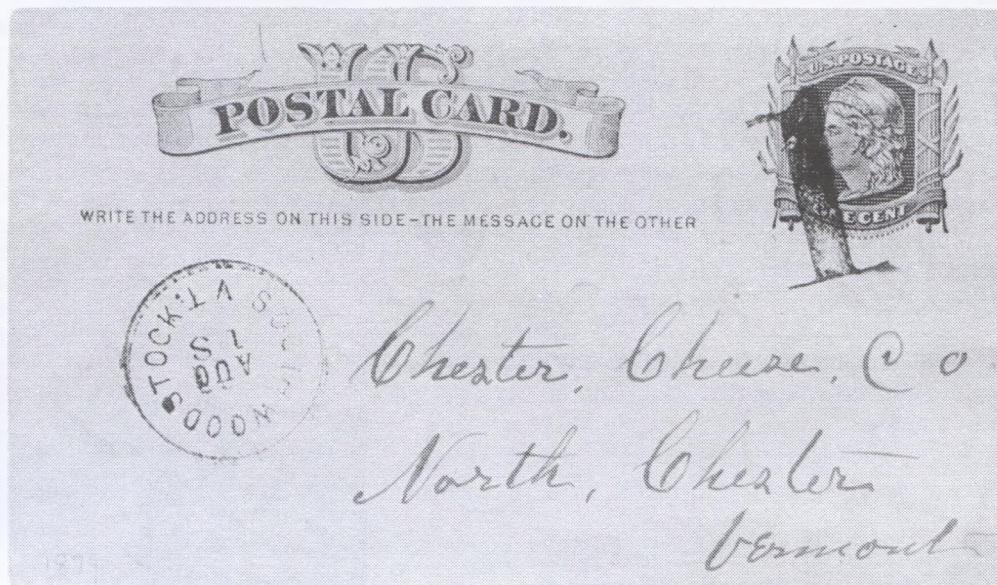 US
POSTAL CARD.
U.S. POSTAGE
ONE CENT
WRITE THE ADDRESS ON THIS SIDE–THE MESSAGE ON THE OTHER
SOUTH WOODSTOCK. VT
AUG
Chester, Cheese, Co
North, Chester
Vermont